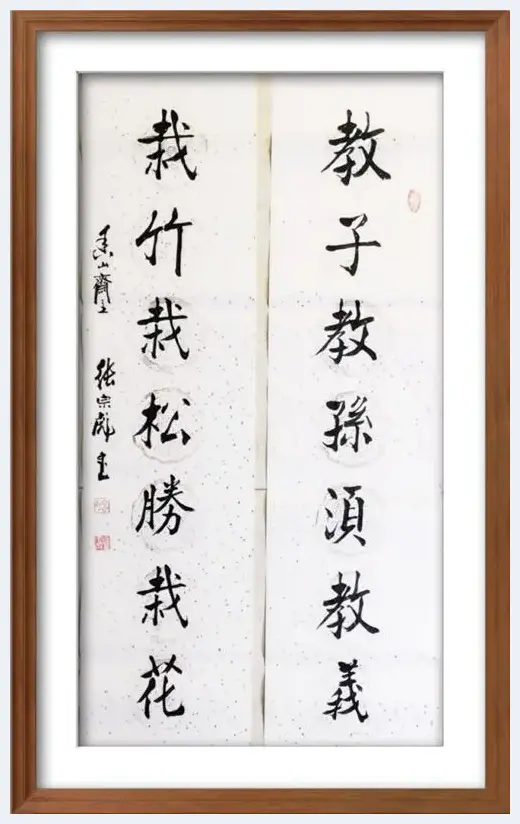 教子教孫須教義
栽竹栽松勝栽花
山齋主 張宗彪書